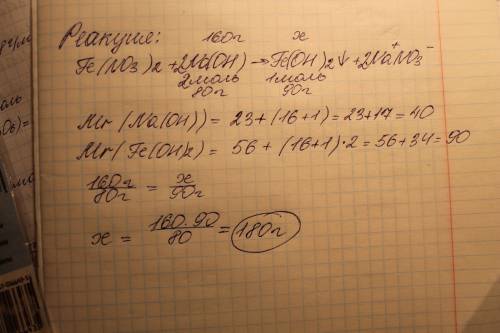 Реакция:
160г х
Fe(NO₃)₂ + 2Na(OH) → Fe(OH)₂↓ + 2Na⁺NO₃⁻
2моль 1моль
80г 90г
Mr (Na(OH)) = 23+(16+1) = 23+17 = 40
Mr (Fe(OH)₂) = 56 + (16+1)·2 = 56 + 34 = 90
160г/80г = х/90г
х = 160·90/80 = 180г